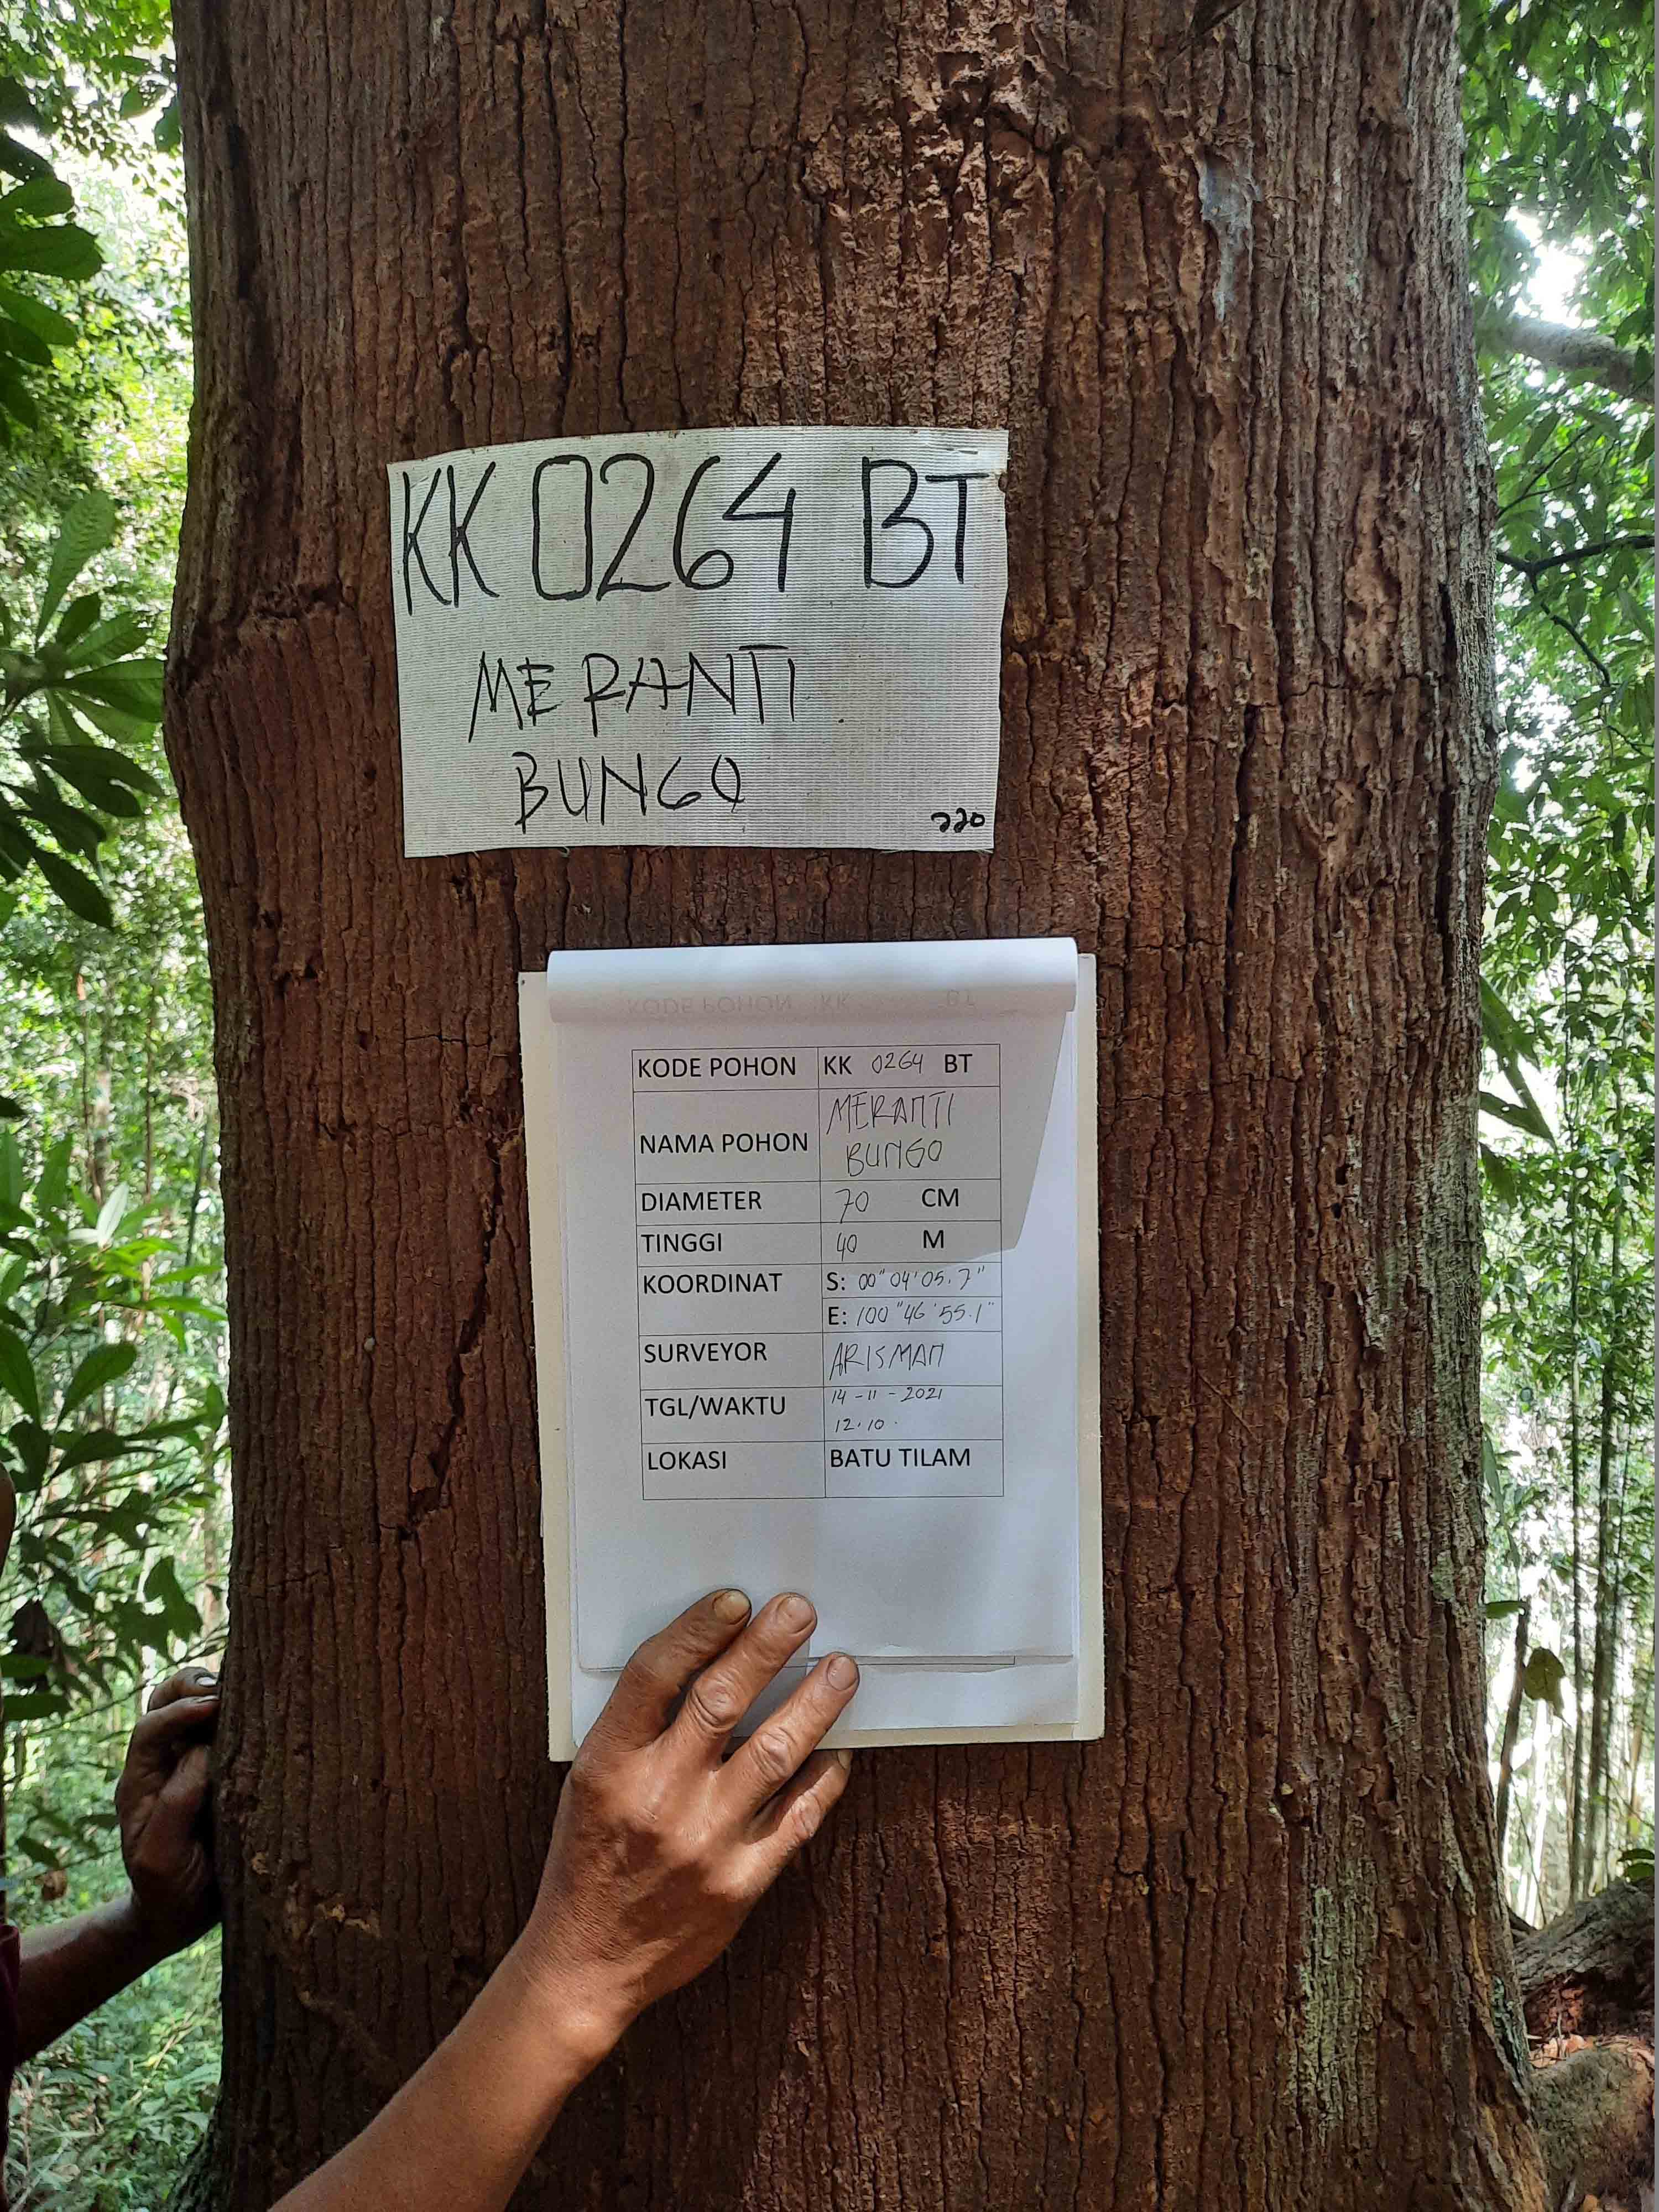 KK 0264 BT
MERANTI
BUNGO
220
KODE POHON KK 0264 BT
NAMA POHON MERANTI BUNGO
DIAMETER 70 CM
TINGGI 40 M
KOORDINAT S: 00" 04' 05.7"
E: 100" 46' 55.1"
SURVEYOR ARISMAN
TGL/WAKTU 14-11-2021
12.10.
LOKASI BATU TILAM